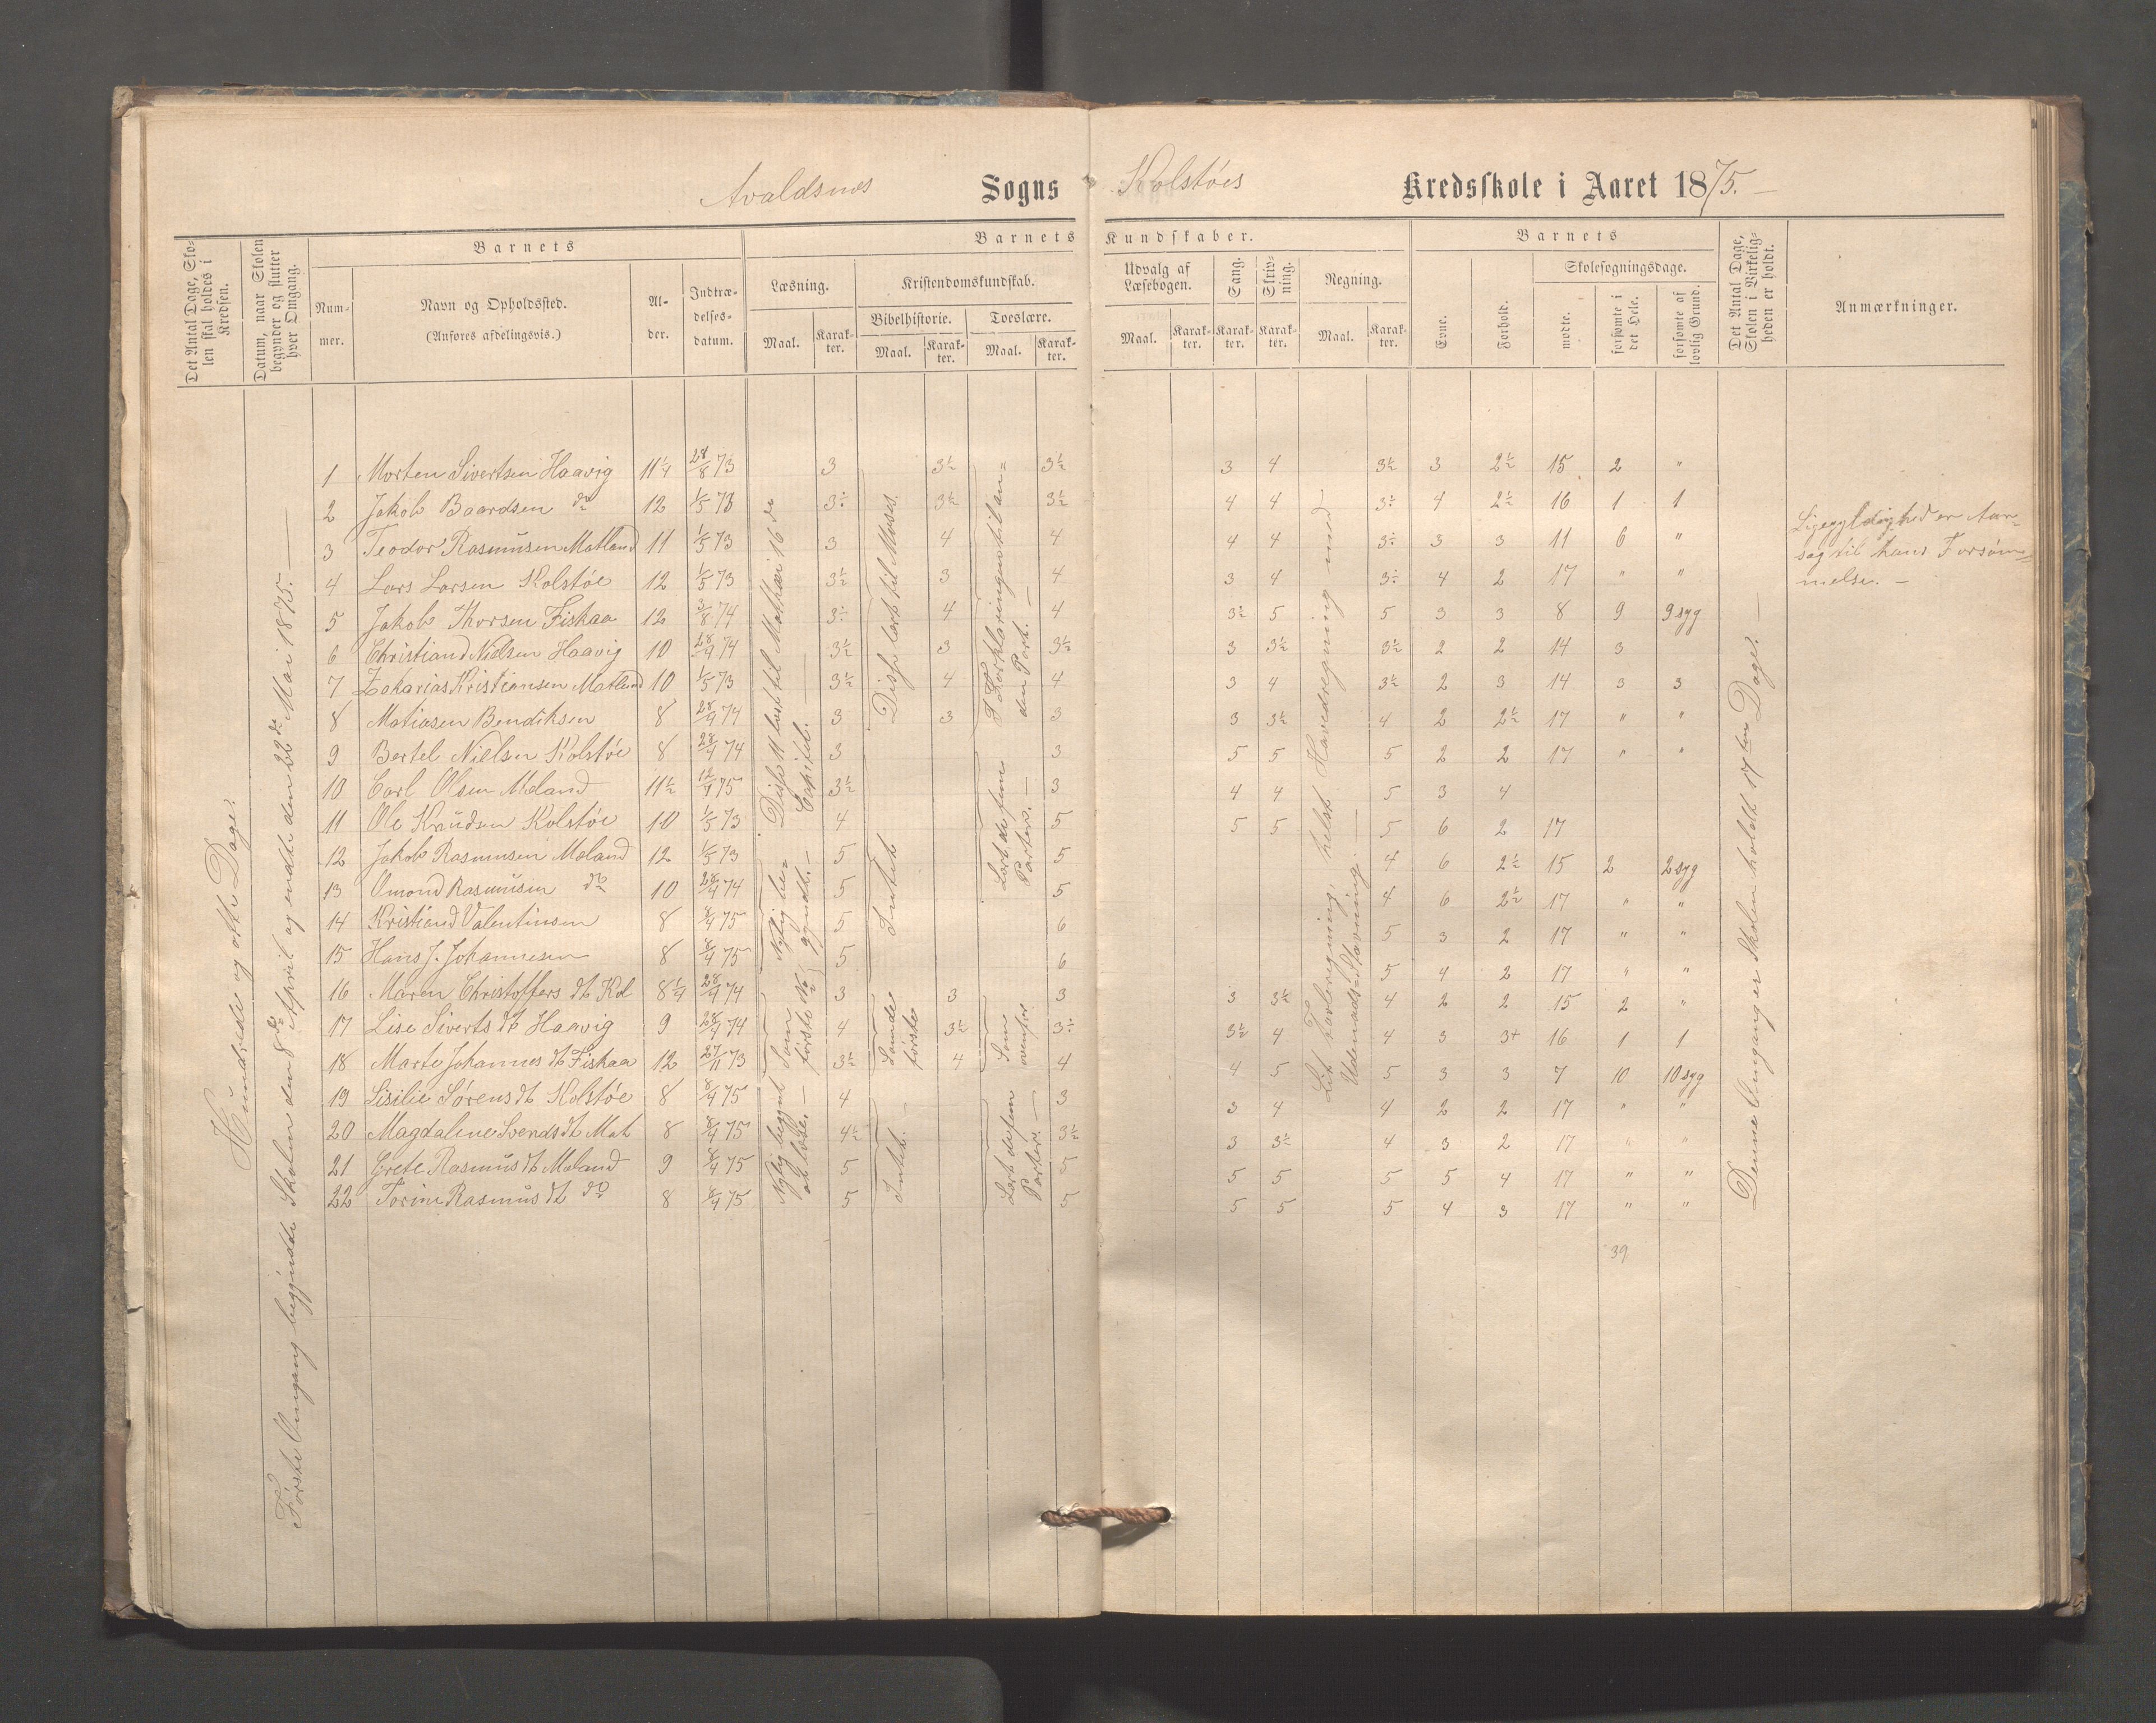 Avaldsnes Sogns Kolstöes Kredsskole i Aaret 1875. —
Det Antal Dage, Skolen skal holdes i Kredsen.
Datum, naar Skolen begynder og slutter hver Omgang.
Barnets
Nummer.
Navn og Opholdssted.
(Anføres afdelingsvis.)
Alder.
Indtrædelsesdatum.
Barnets Kundskaber.
Læsning.
Maal. Karakter.
Kristendomskundskab.
Bibelhistorie. Troeslære.
Maal. Karakter. Maal. Karakter.
Udvalg af Læsebogen.
Maal. Karakter.
Sang. Karakter.
Skrivning. Karakter.
Regning.
Maal. Karakter.
Barnets
Evne. Forhold.
Skolesøgningsdage.
mødte. forsømte i det Hele. forsømte af lovlig Grund.
Det Antal Dage, Skolen i Virkeligheden er holdt.
Anmærkninger.
Hundrede og otte Dage.
Første Omgang begyndte Skolen den 8de April og endte den 22de Mai 1875. —
1 Morten Sivertsen Haavig 11 1/4 28/8 73 3 3½ 3½ 3 4 3½ 3 2½ 15 2 "
2 Jakob Baardsen do 12 1/5 73 3÷ 3½ 3½ 4 4 3÷ 4 2½ 16 1 1
3 Teodor Rasmusen Matland 11 1/5 73 3 4 4 4 4 3÷ 3 3 11 6 "
4 Lars Larsen Kolstöe 12 1/5 73 3½ 3 4 3 4 3÷ 4 2 17 " "
5 Jakob Thorsen Fiskaa 12 3/8 74 3÷ 4 4 3½ 5 5 3 3 8 9 9 syg
6 Christian Nielsen Haavig 10 28/9 74 3½ 3 3½ 3 3½ 3½ 2 2 14 3
7 Zakarias Kristiansen Matland 10 1/5 73 3½ 4 4 3 4 3½ 2 3 14 3 3
8 Matiasen Bendiksen 8 28/9 74 3 3 3 3 3½ 4 2 2½ 17 " "
9 Bertel Nielsen Kolstöe 8 28/4 74 3 3 5 5 5 2 2 17 " "
10 Carl Olsen Meland 11½ 12/4 75 3½ 3 4 4 5 3 4
11 Ole Knudsen Kolstöe 10 1/5 73 4 5 5 5 5 6 2 17
12 Jakob Rasmusen Meland 12 1/5 73 5 5 4 6 2½ 15 2 2 syg
13 Omond Rasmusen do 10 28/4 74 5 5 4 6 2½ 17 " "
14 Kristian Valentinsen 8 8/4 75 5 6 5 3 2 17 " "
15 Hans J. Johannesen 8 8/4 75 5 6 5 4 2 17 " "
16 Maren Christoffers dt Kol 8 1/4 28/4 74 3 3 3 3 3½ 4 2 2 15 2 "
17 Lise Siverts dt Haavig 9 28/4 74 4 3½ 3÷ 3½ 4 4 3 3+ 16 1 1
18 Marte Johannes dt Fiskaa 12 27/11 73 3½ 4 4 4 5 5 3 3 7 10 10 syg
19 Sisilie Sörens dt Kolstöe 8 8/4 75 4 3 3 4 4 2 2 17 " "
20 Magdaline Svends dt Mat 8 8/4 75 4½ 3½ 3 3½ 4 3 2 17 " "
21 Grete Rasmus dt Meland 9 8/4 75 5 5 5 5 5 5 4 17 " "
22 Torine Rasmus dt do 8 8/4 75 5 5 5 5 5 4 3 17 " "
39
Disse 11 læst til Matthæi 16 de Capitel. —
Nylig begyndt. —
Som første No
Nylig begynt at læse. —
Disse læst til Moses.
Intet
Samde første
Intet. —
I Forklaringen til anden Part. —
Lært de fem Parter. —
Som ovenfor
Lært de fem Parter. —
Lit Tavleregning, helst Hovedregning med Udenads-Stavning. —
Denne Omgang er Skolen holdt 17ten Dage. —
Ligegyldighed er Aarsag til hans Forsømmelse. —